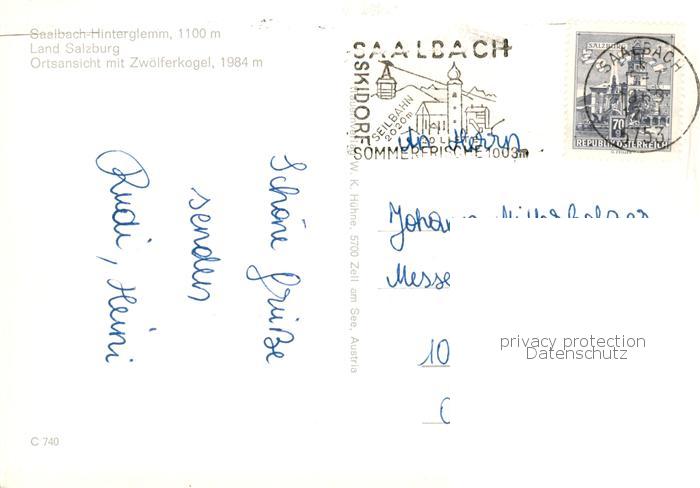 Saalbach-Hinterglemm, 1100 m
Land Salzburg
Ortsansicht mit Zwölferkogel, 1984 m
SAALBACH
SKIDORF
SEILBAHN
2020m
SOMMERFRISCHE 1003m
SALZBURG
70
REPUBLIK ÖSTERREICH
SAALBACH
5753
An Herrn
Johan
Messe
10
Schöne Grüße
senden
Rudi, Heini
W. K. Hühne, 5700 Zell am See, Austria
privacy protection
Datenschutz
C 740